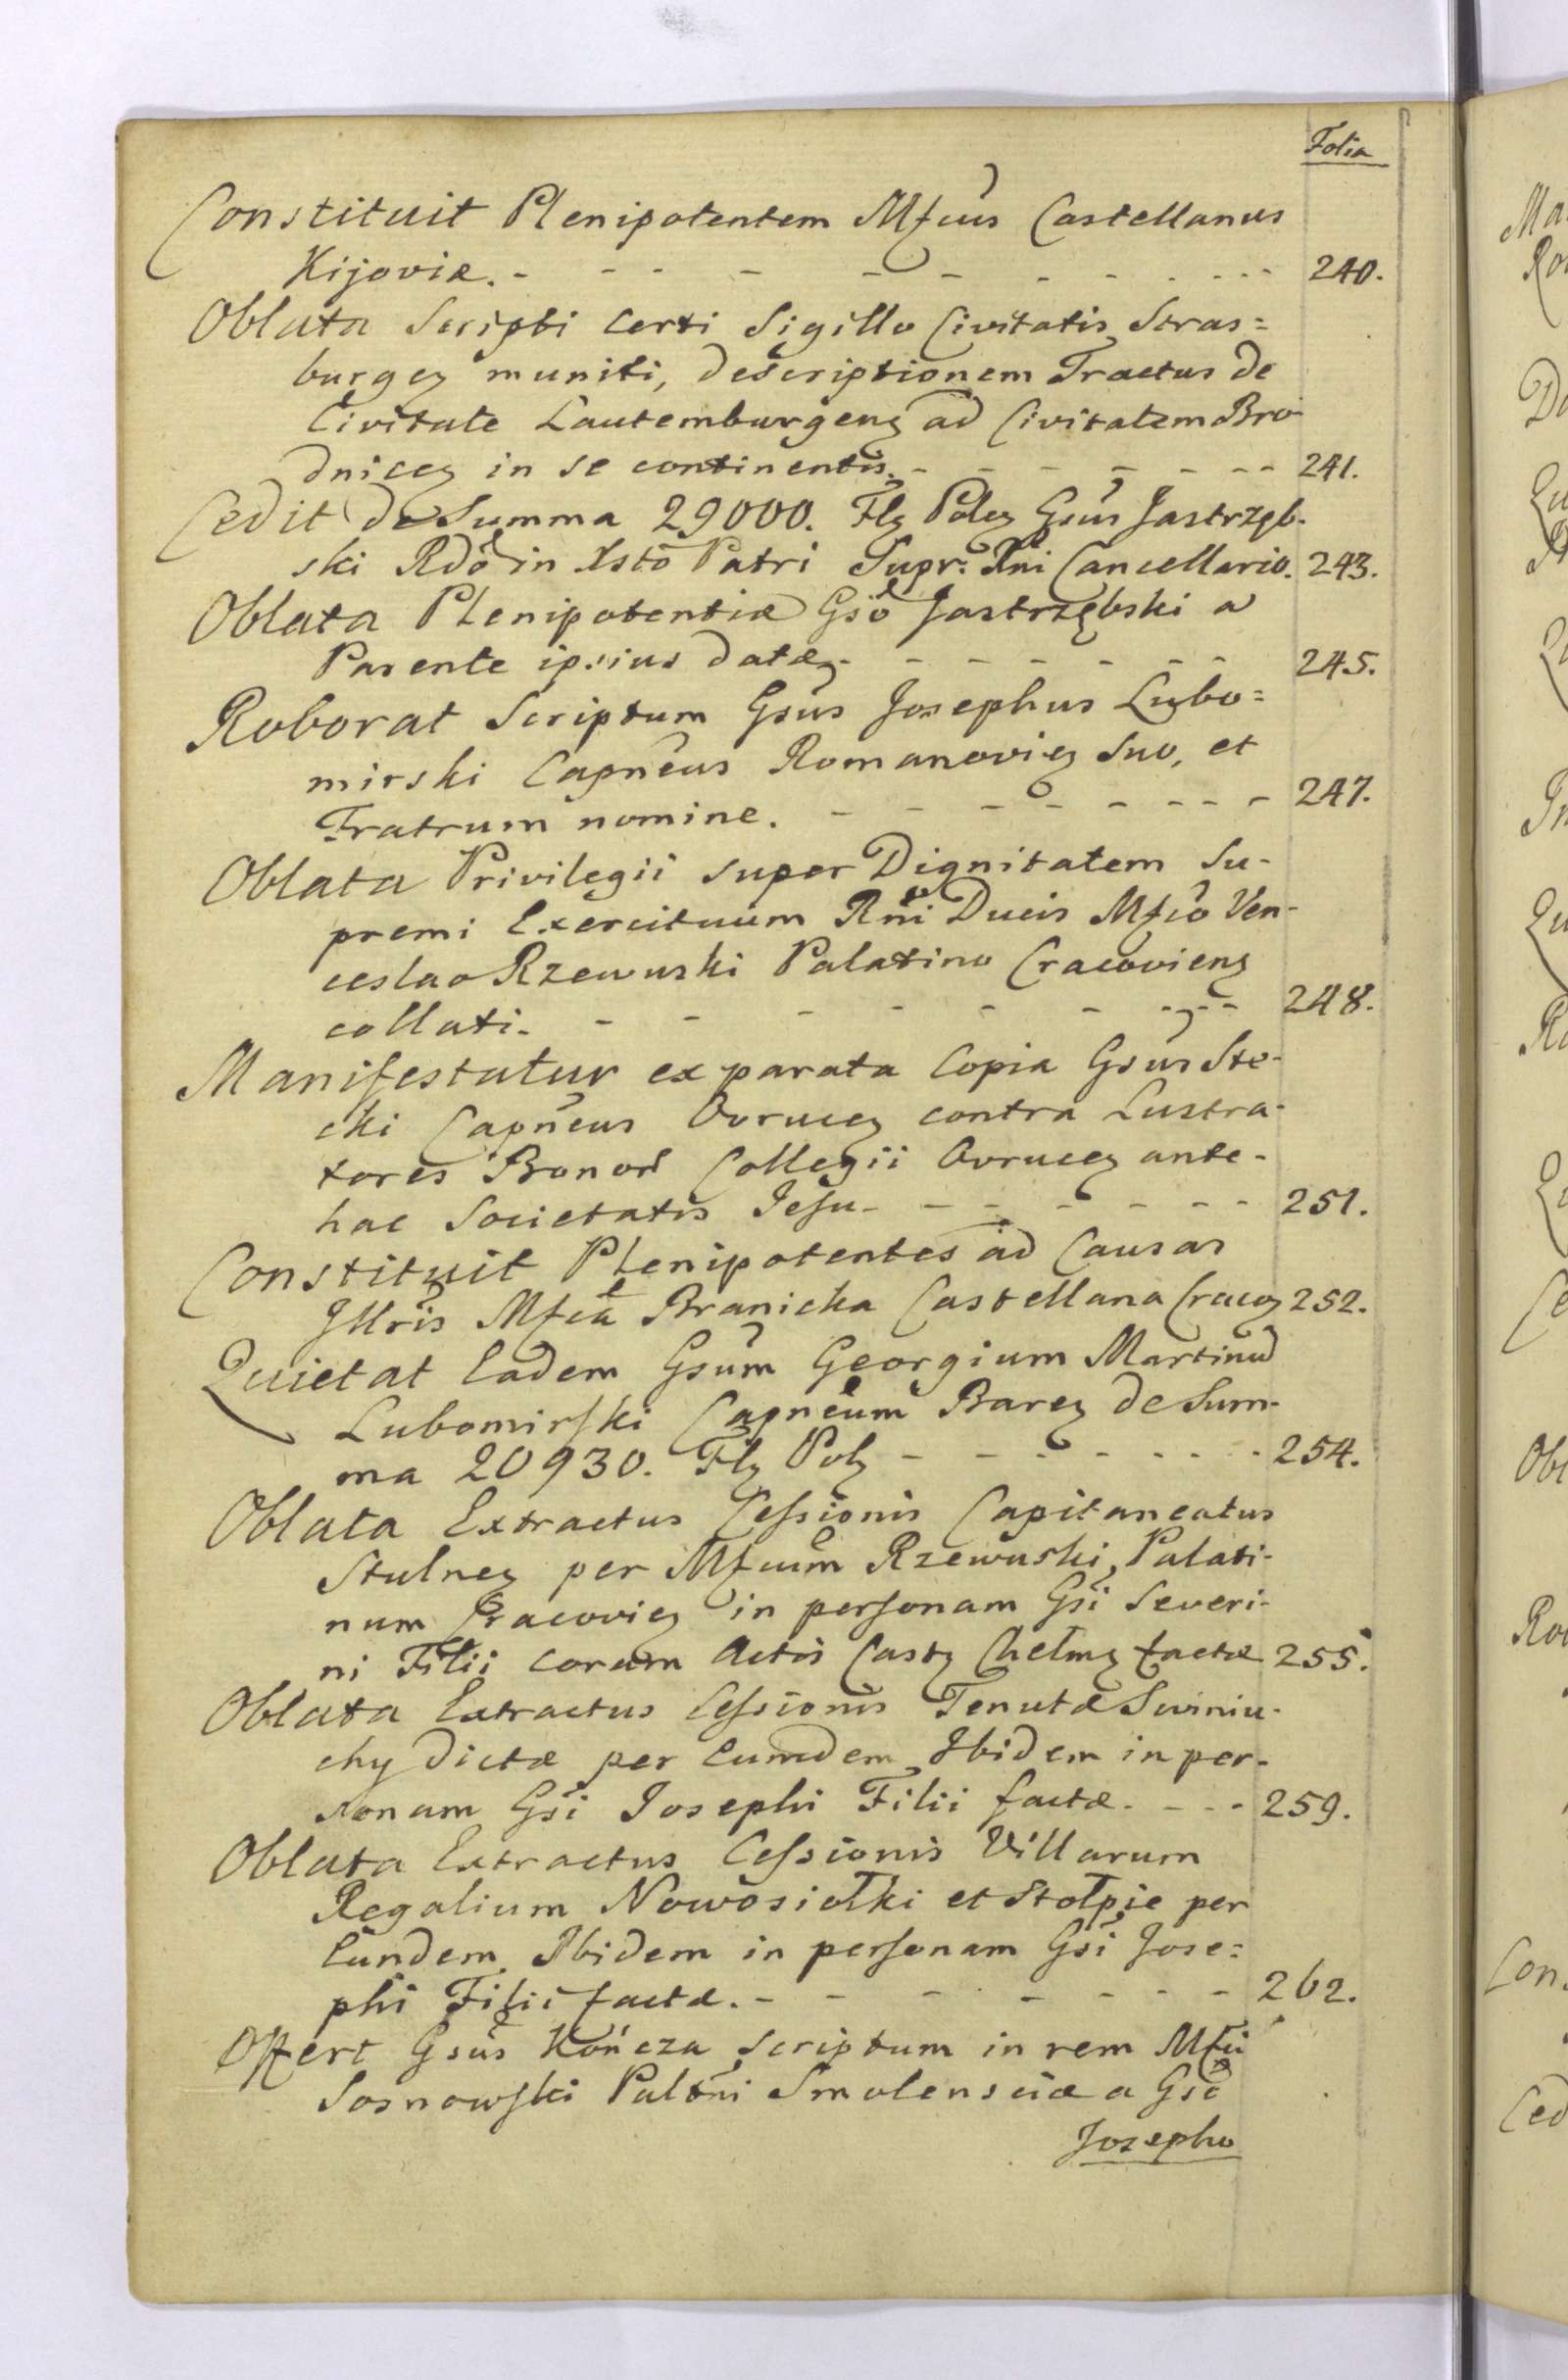 Folia
Constituit Plenipotentem Mfcus Castellanus
Kijoviæ. - - - - - - - - - - - 240.
Oblata Scripti Certi Sigillo Civitatis Stras=
burgeȝ muniti, descriptionem Tractus de
Civitate Lautemburgenȝ ad Civitatem Bro-
dniceȝ in se continentis. - - - - - - - 241.
Cedit de Summa 29000. Flȝ Poleȝ Gsus Jastrzęb.
ski Rdo in Xsto Patri Supr: Rni Cancellario. 243.
Oblata Plenipotentiæ Gso Jastrzębski a
Parente ipsius datæ - - - - - - - 245.
Roborat Scriptum Gsus Josephus Lubo=
mirski Capneus Romanovieȝ Suo, et
Fratrum nomine. - - - - - - - - 247.
Oblata Privilegii super Dignitatem Su-
premi Exercituum Rni Ducis Mfco Ven-
ceslao Rzewuski Palatino Cracovienȝ
collati. - - - - - - - - - 248.
Manifestatur ex parata Copia Gsus Ste-
cki Capneus Ovruceȝ contra Lustra-
tores Bonor Collegii Ovruceȝ ante-
hac Societatis Jesu - - - - - - - 251.
Constituit Plenipotentes ad Causas
Jllris Mfca Branicka Castellana Cracoȝ 252.
Quietat Eadem Gsum Georgium Martinu
Lubomirski Capneum Bareȝ de Sum-
ma 20930. Flȝ Polȝ - - - - - - - 254.
Oblata Extractus Cessionis Capitaneatus
Stulneȝ per Mfcum Rzewuski, Palati-
num Cracovieȝ in personam Gsi Severi-
ni Filii coram Actis Castȝ Chelmȝ factæ 255.
Oblata Extractus Cessionis Tenutæ Swiniu-
chy dictæ per Eumdem Ibidem in per-
sonam Gsi Josephi Filii factæ. - - - 259.
Oblata Extractus Cessionis Villarum
Regalium Nowosiołki et Stołpie per
Eundem Ibidem in personam Gsi Jose=
phi Filii factæ. - - - - - - - 262.
Offert Gsus Kończa Scriptum in rem Mfci
Sosnowski Paltni Smolensciæ a Gso
Josepho